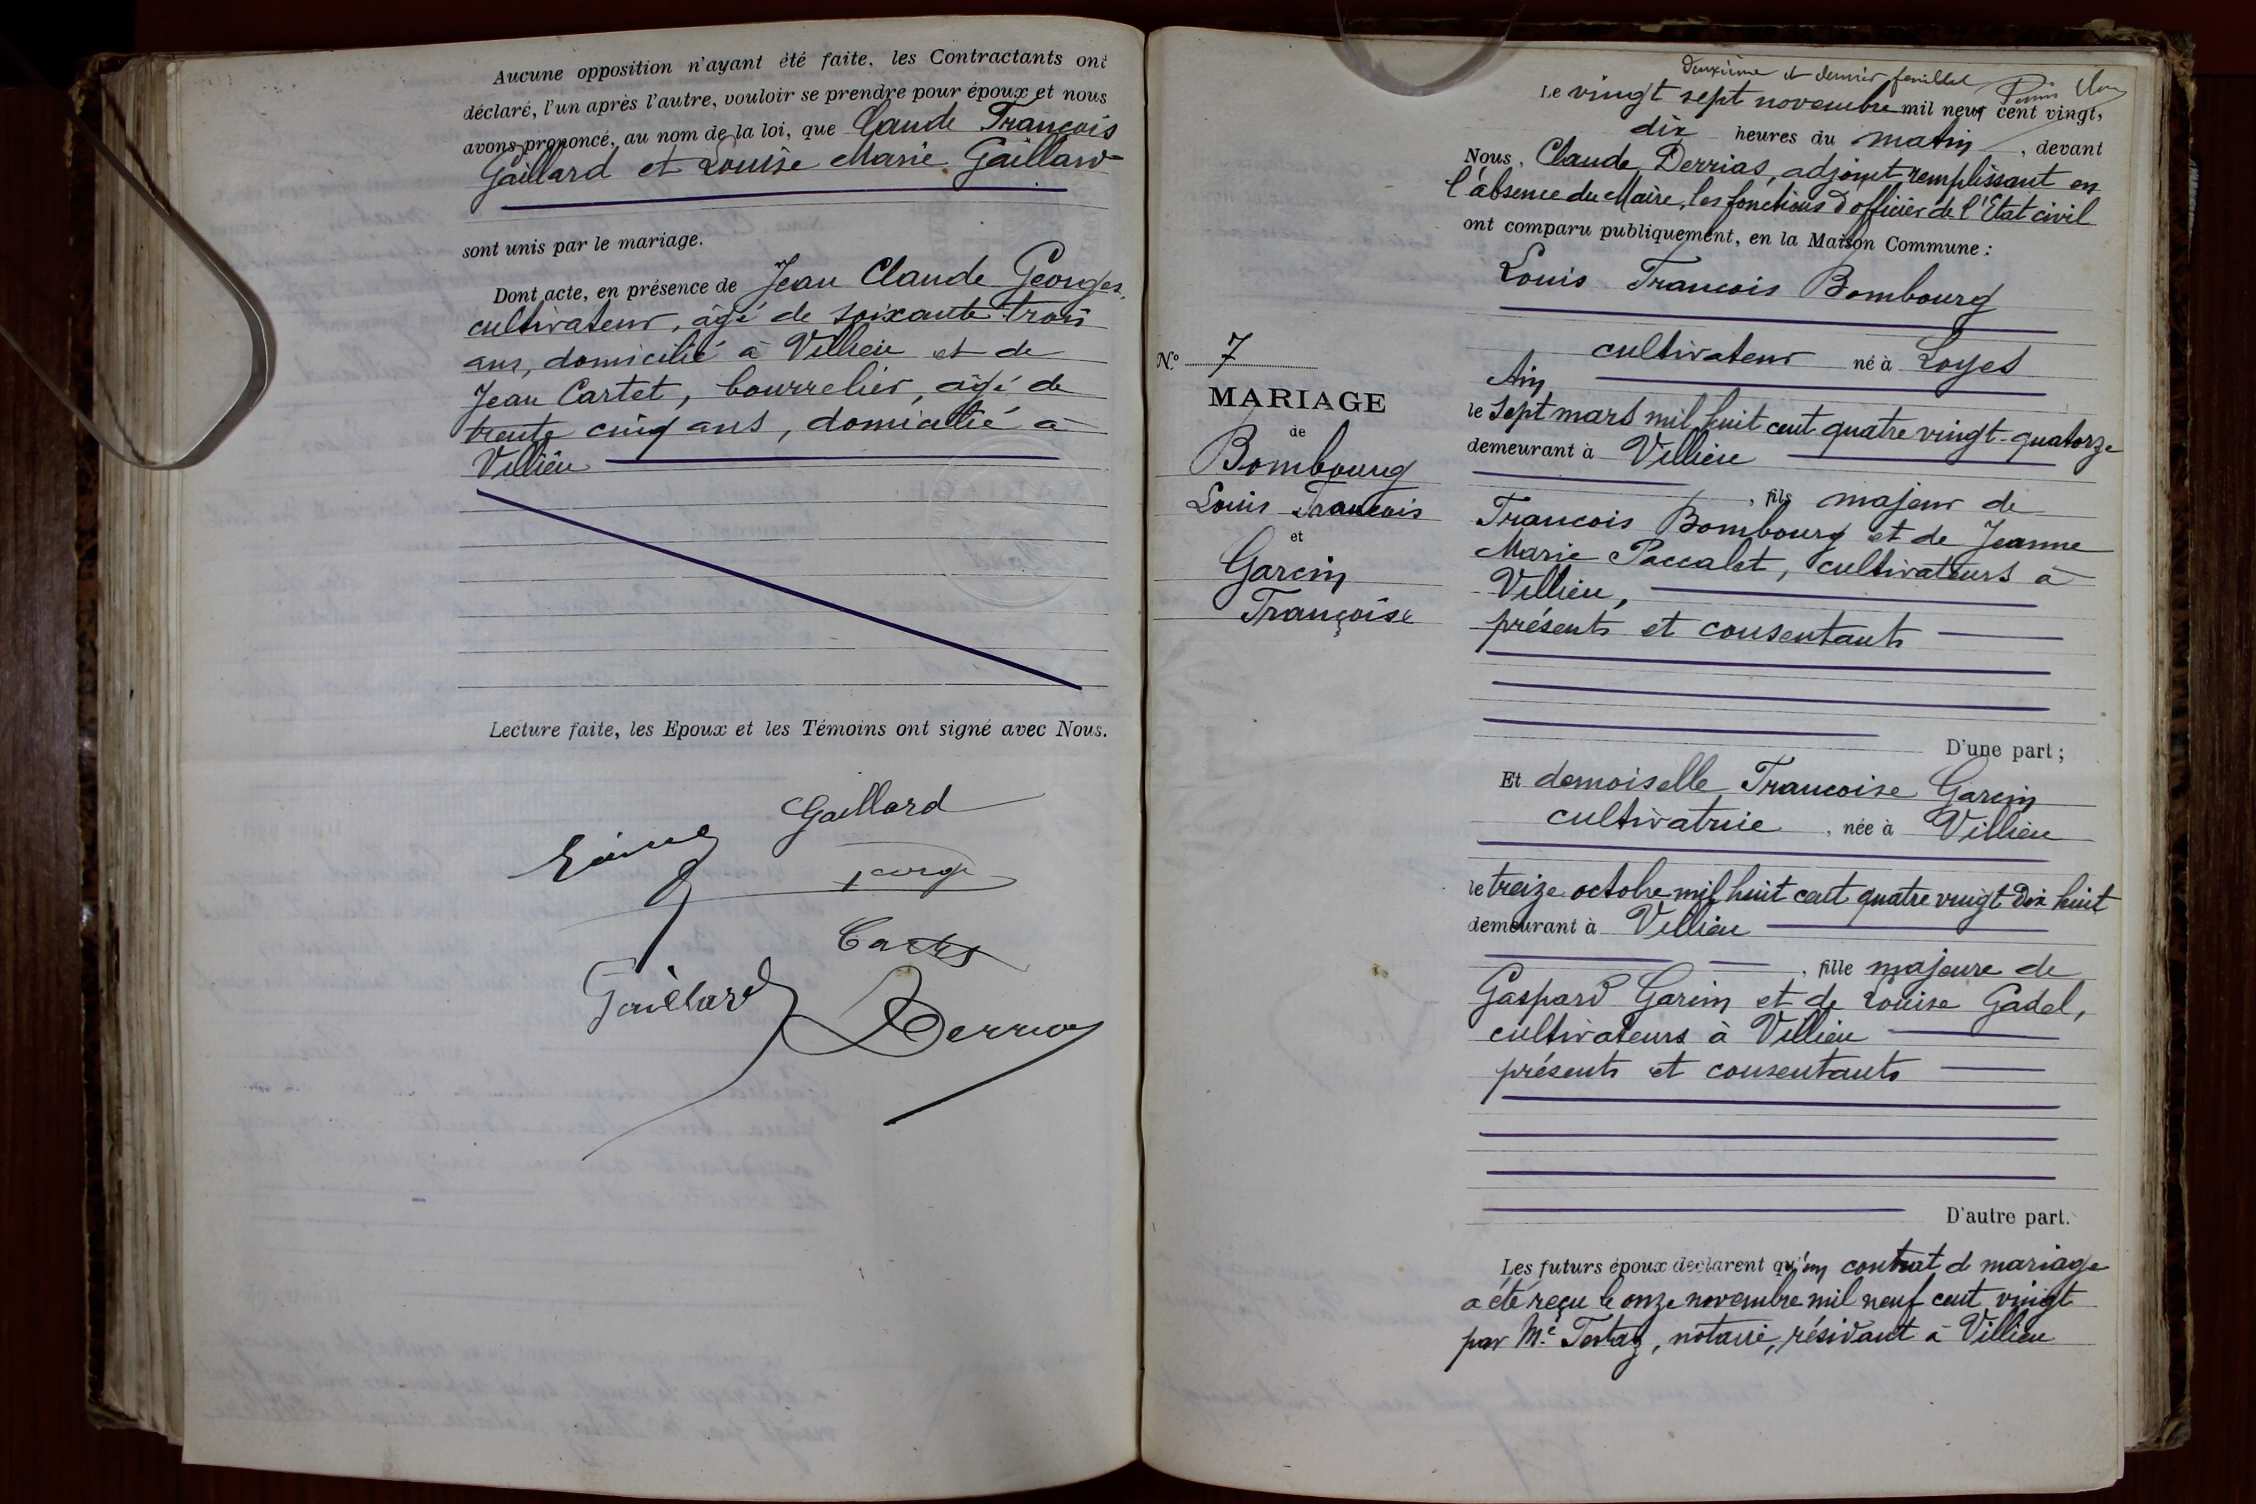 Aucune opposition n'ayant été faite, les Contractants ont
déclaré, l'un après l'autre, vouloir se prendre pour époux et nous
avons prononcé, au nom de la loi, que Claude François
Gaillard et Louise Marie Gaillard
sont unis par le mariage.
Dont acte, en présence de Jean Claude Georges,
cultivateur, âgé de soixante trois
ans, domicilié à Villieu et de
Jean Cartet, bourrelier, âgé de
trente cinq ans, domicilié à
Villieu
Lecture faite, les Epoux et les Témoins ont signé avec Nous.
Gaillard
Gaillard
Derrias
Deuxième et dernier feuillet
Le vingt sept novembre mil neuf cent vingt,
dix heures du matin, devant
Nous, Claude Derrias, adjoint remplissant en
l'absence du Maire, les fonctions d'officier de l'Etat civil
ont comparu publiquement, en la Maison Commune :
Louis Francois Bombourg
cultivateur né à Loyes
Ain
le sept mars mil huit cent quatre vingt-quatorze
demeurant à Villieu
, fils majeur de
Francois Bombourg et de Jeanne
Marie Paccalet, cultivateurs à
Villieu,
présents et consentants
D'une part ;
N° 7
MARIAGE
de
Bombourg
Louis Francois
et
Garcin
Françoise
Et demoiselle Francoise Garcin
cultivatrice, née à Villieu
le treize octobre mil huit cent quatre vingt dix huit
demeurant à Villieu
, fille majeure de
Gaspard Garcin et de Louise Gadel,
cultivateurs à Villieu
présents et consentants
D'autre part.
Les futurs époux déclarent qu'un contrat de mariage
a été reçu le onze novembre mil neuf cent vingt
par Me Tortaz, notaire, résidant à Villieu